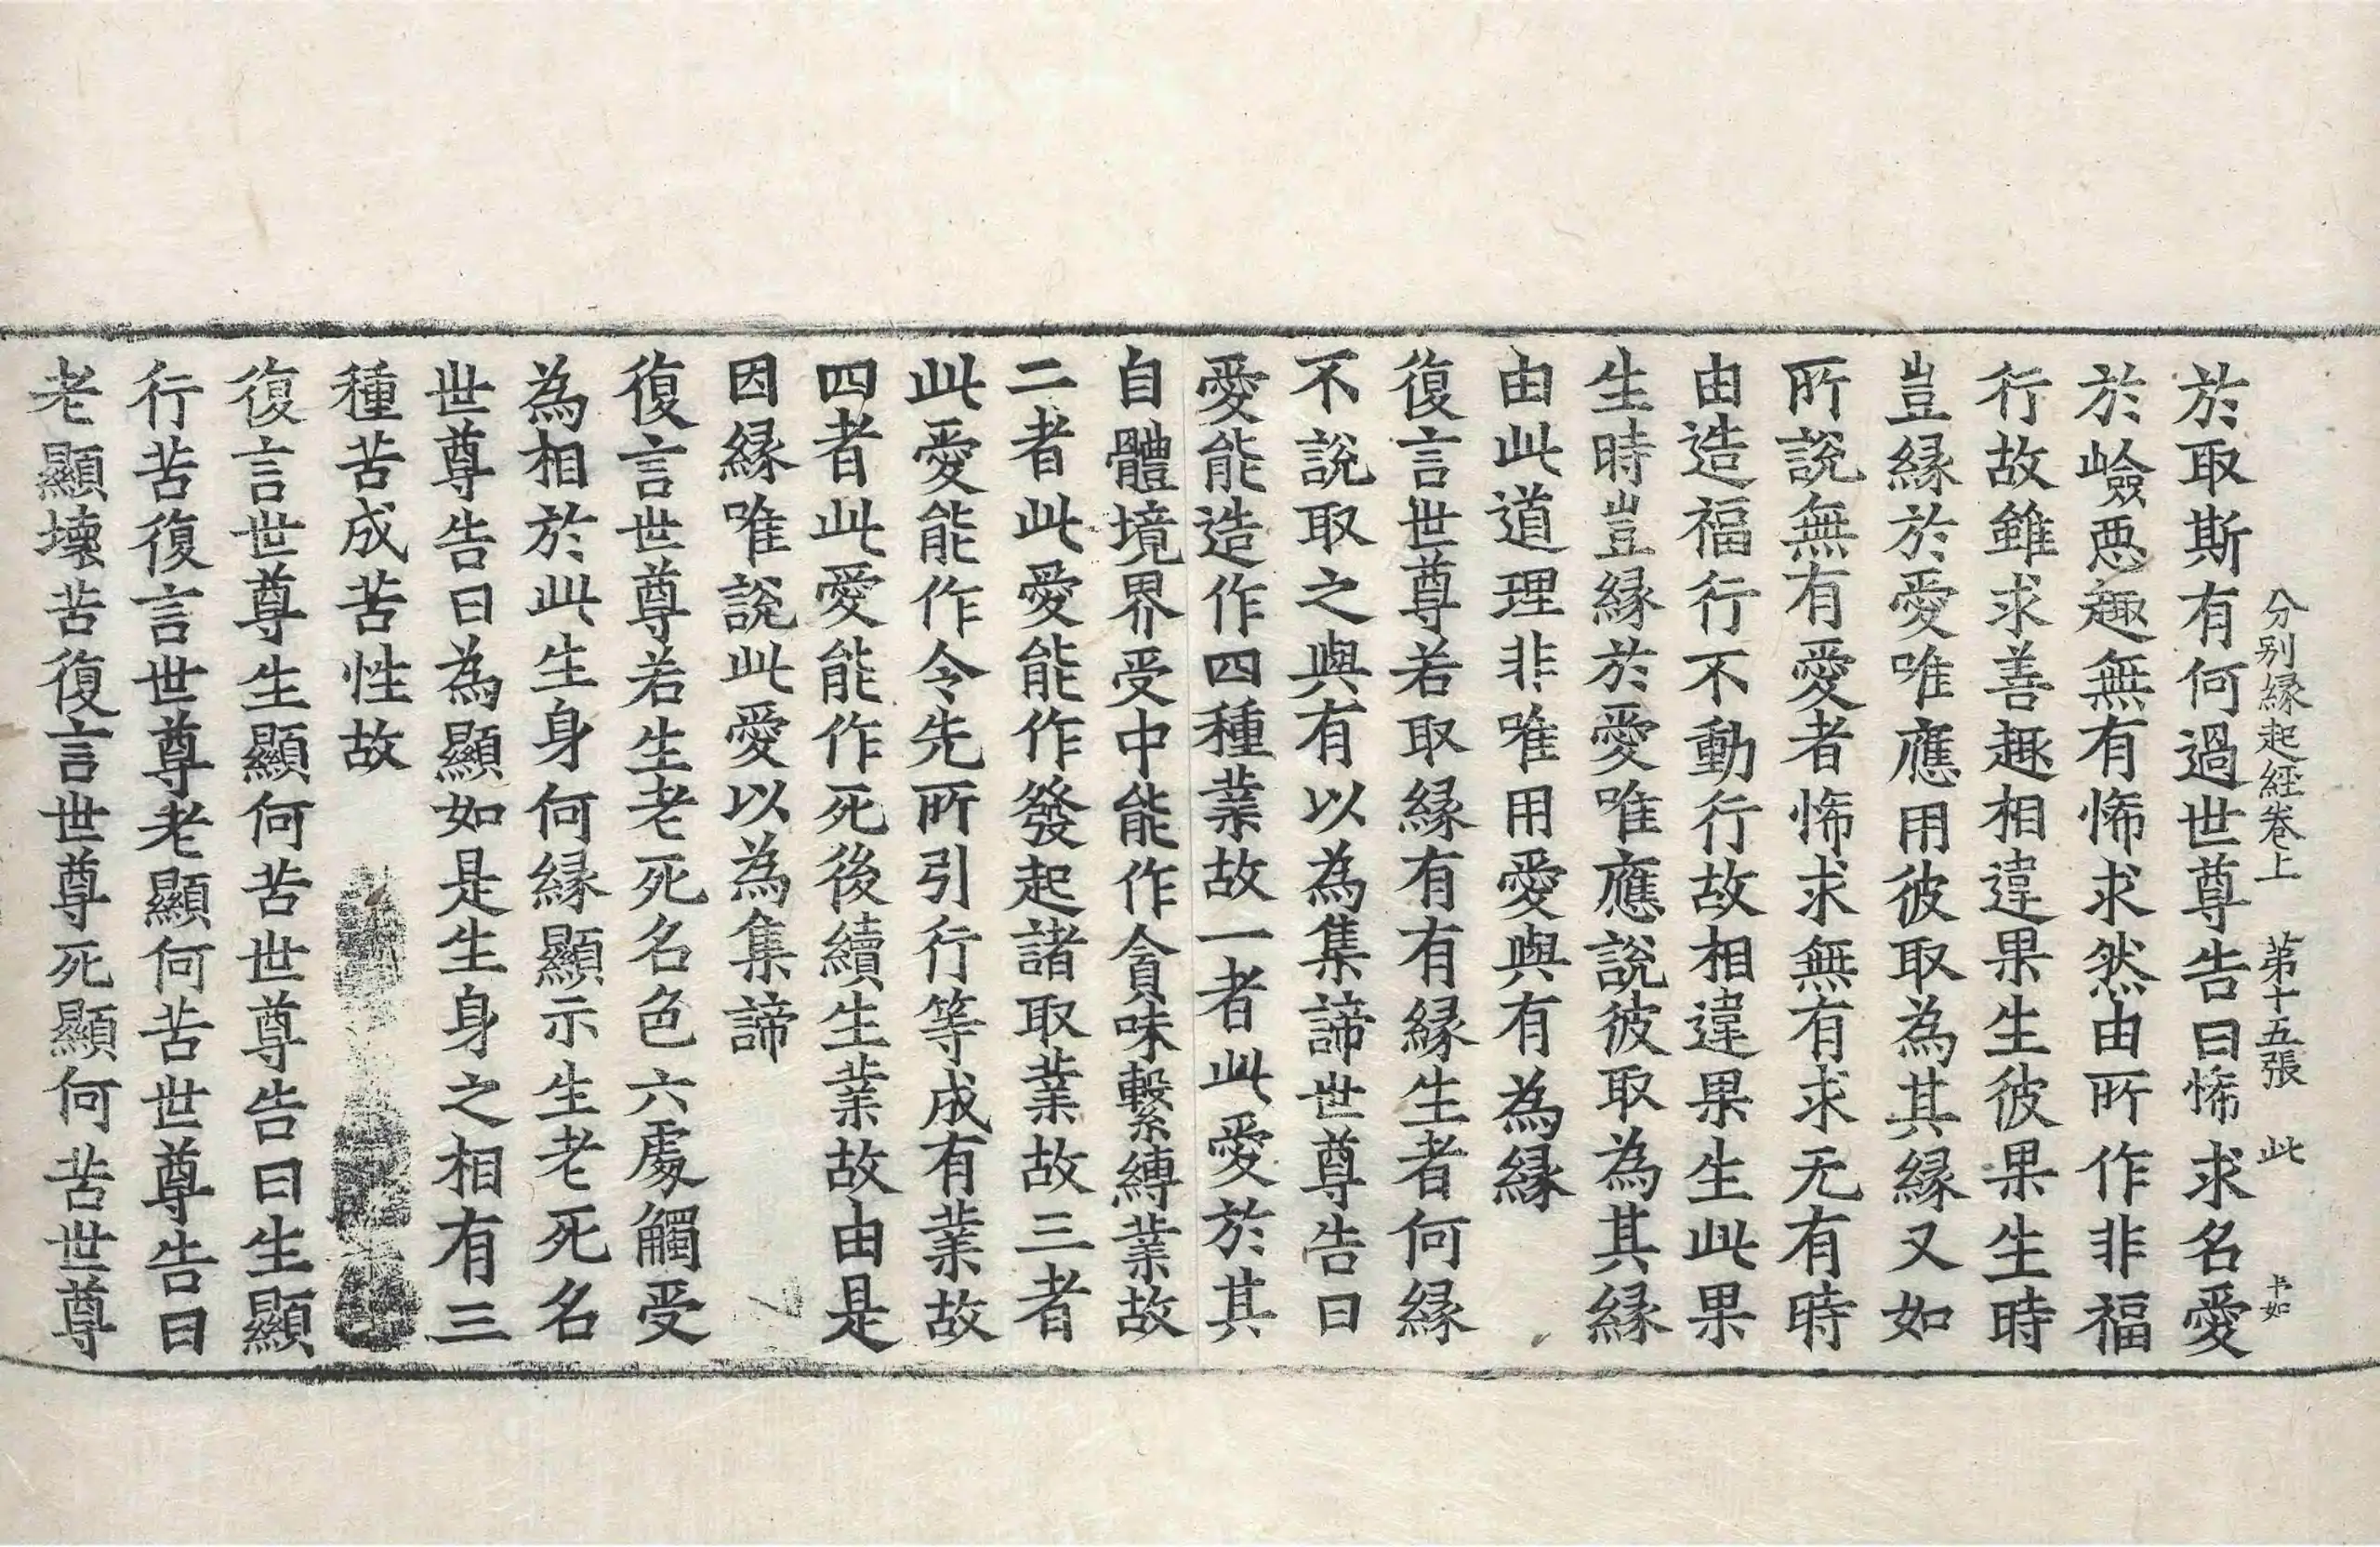 分別縁起經卷上　第十五張　此　卞如
於取斯有何過世尊告曰悕求名愛
於嶮惡趣無有悕求然由所作非福
行故雖求善趣相違果生彼果生時
豈縁於愛唯應用彼取為其縁又如
所說無有愛者悕求無有求无有時
由造福行不動行故相違果生此果
生時豈縁於愛唯應說彼取為其縁
由此道理非唯用愛與有為縁
復言世尊若取縁有有縁生者何縁
不說取之與有以為集諦世尊告曰
愛能造作四種業故一者此愛於其
自體境界受中能作貪味繫縛業故
二者此愛能作發起諸取業故三者
此愛能作令先所引行等成有業故
四者此愛能作死後續生業故由是
因縁唯說此愛以為集諦
復言世尊若生老死名色六處觸受
為相於此生身何縁顯示生老死名
世尊告曰為顯如是生身之相有三
種苦成苦性故
復言世尊生顯何苦世尊告曰生顯
行苦復言世尊老顯何苦世尊告曰
老顯壞苦復言世尊死顯何苦世尊